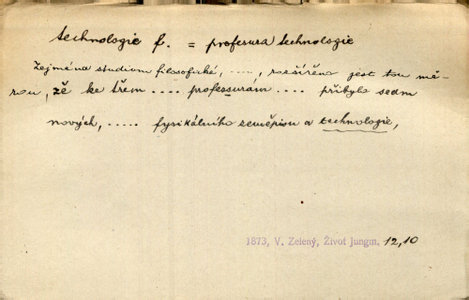 technologie f. = profesura technologie
Zejména studium filosofické, ...., rozšířeno jest tou mě-
rou, zě ke třem .... professurám .... přibylo sedm
nových, ..... fysikálního zeměpisu a technologie,
1873, V. Zelený, Život Jungm. 12,10